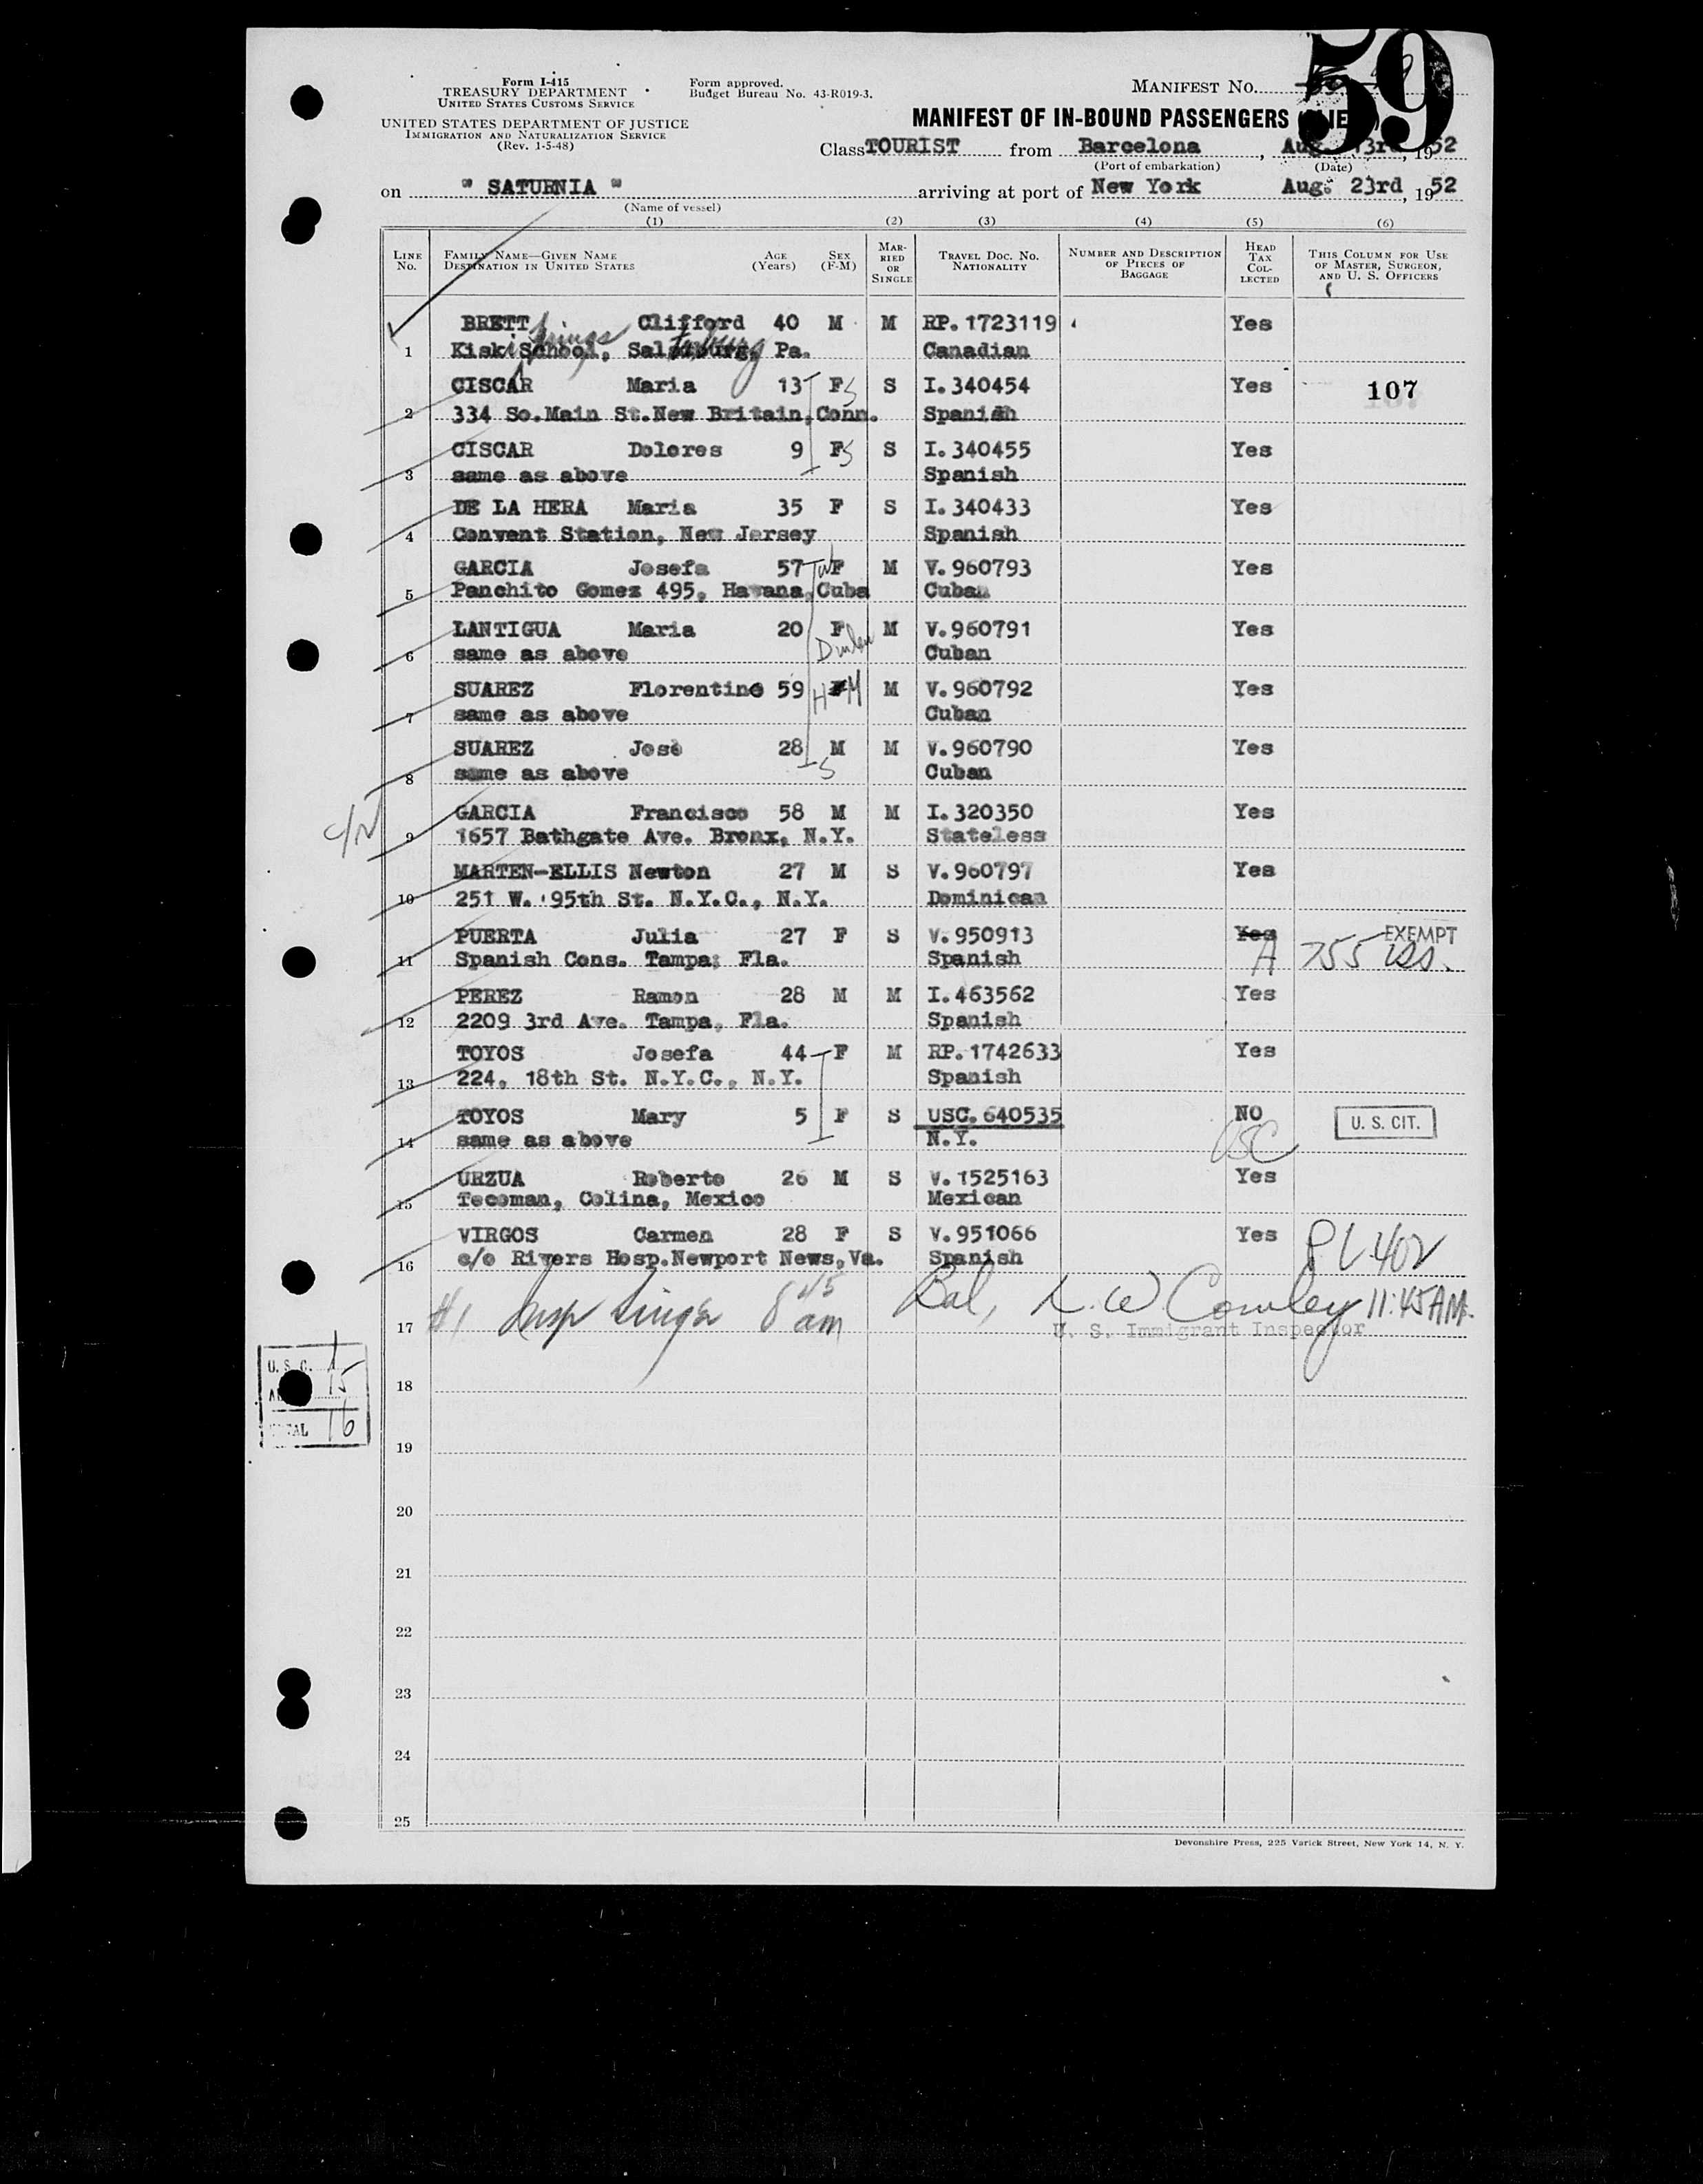 59
Form I-415
TREASURY DEPARTMENT
UNITED STATES CUSTOMS SERVICE
UNITED STATES DEPARTMENT OF JUSTICE
IMMIGRATION AND NATURALIZATION SERVICE
(Rev. 1-5-48)
Form approved.
Budget Bureau No. 43-R019-3.
MANIFEST NO.
MANIFEST OF IN-BOUND PASSENGERS
Class TOURIST from Barcelona, Aug. 13rd, 1952
(Port of embarkation) (Date)
on " SATURNIA " arriving at port of New York Aug. 23rd, 1952
(Name of vessel)
(1) (2) (3) (4) (5) (6)
LINE NO. FAMILY NAME—GIVEN NAME DESTINATION IN UNITED STATES AGE (Years) SEX (F-M) MARRIED OR SINGLE TRAVEL DOC. NO. NATIONALITY NUMBER AND DESCRIPTION OF PIECES OF BAGGAGE HEAD TAX COLLECTED THIS COLUMN FOR USE OF MASTER, SURGEON, AND U. S. OFFICERS
BRETT Clifford 40 M M RP. 1723119 Yes
1 Kiski School, Pa. Canadian
CISCAR Maria 13 F S S I. 340454 Yes 107
2 334 So. Main St. New Britain, Conn. Spanish
CISCAR Dolores 9 F S S I. 340455 Yes
3 same as above Spanish
DE LA HERA Maria 35 F S I. 340433 Yes
4 Convent Station, New Jersey Spanish
GARCIA Josefa 57 W F M V. 960793 Yes
5 Panchito Gomez 495, Havana, Cuba Cuban
LANTIGUA Maria 20 F M V. 960791 Yes
6 same as above Cuban
SUAREZ Florentino 59 H M M V. 960792 Yes
7 same as above Cuban
SUAREZ José 28 M M V. 960790 Yes
8 same as above S Cuban
GARCIA Francisco 58 M M I. 320350 Yes
9 1657 Bathgate Ave. Bronx, N.Y. Stateless
MARTEN-ELLIS Newton 27 M S V. 960797 Yes
10 251 W. 95th St. N.Y.C., N.Y. Dominican
PUERTA Julia 27 F S V. 950913 Yes EXEMPT
11 Spanish Cons. Tampa, Fla. Spanish A 755
PEREZ Ramon 28 M M I. 463562 Yes
12 2209 3rd Ave. Tampa, Fla. Spanish
TOYOS Josefa 44 F M RP. 1742633 Yes
13 224, 18th St. N.Y.C., N.Y. Spanish
TOYOS Mary 5 F S USC. 640535 NO U. S. CIT.
14 same as above N.Y. USC
URZUA Roberto 26 M S V. 1525163 Yes
15 Tecoman, Colina, Mexico Mexican
VIRGOS Carmen 28 F S V. 951066 Yes
16 c/o Rivers Hosp. Newport News, Va. Spanish
#1 Insp Singer 8 45 am Bal, L. W Cowley 11:45 AM.
17 U. S. Immigrant Inspector
U. S. C. 1
15
TOTAL 16
18
19
20
21
22
23
24
25
Devonshire Press, 225 Varick Street, New York 14, N. Y.